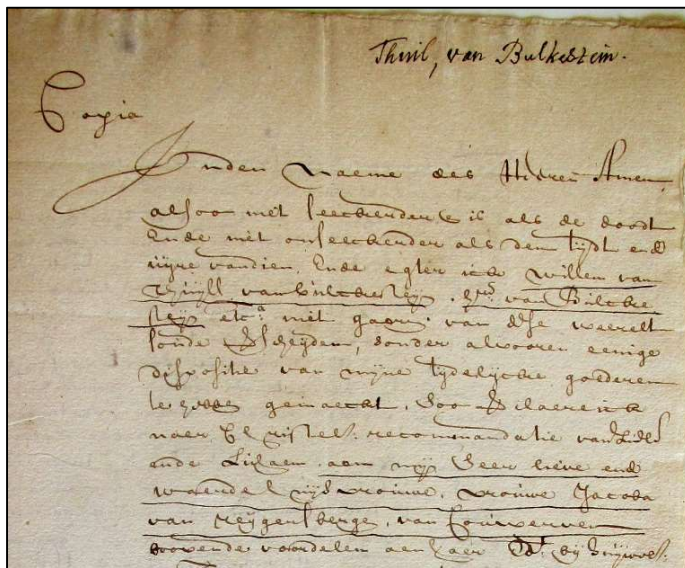 Thuil, van Bulkestein.
Copia
Inden naeme des Heeren Amen,
alsoo niet seeckerder is als de doodt
Ende niet onseeckerder als den tijdt ende
uijre vandien, Ende egter ick willem van
Thuijll van bulckesteijn, van Bulcke
steijn etca. niet gaern van dese weerelt
soude scheijden, sonder alvooren eenige
dispositie van mijne tijdelijcke goederen
te gemaeckt, Soo ick
naer Christel: recommandatie van
ende Lichaem, aen mijn Seer lieve ende
waerde vrouwe Jacoba
van Reijgersberge, van Couwerven
voordelen aen haer bij